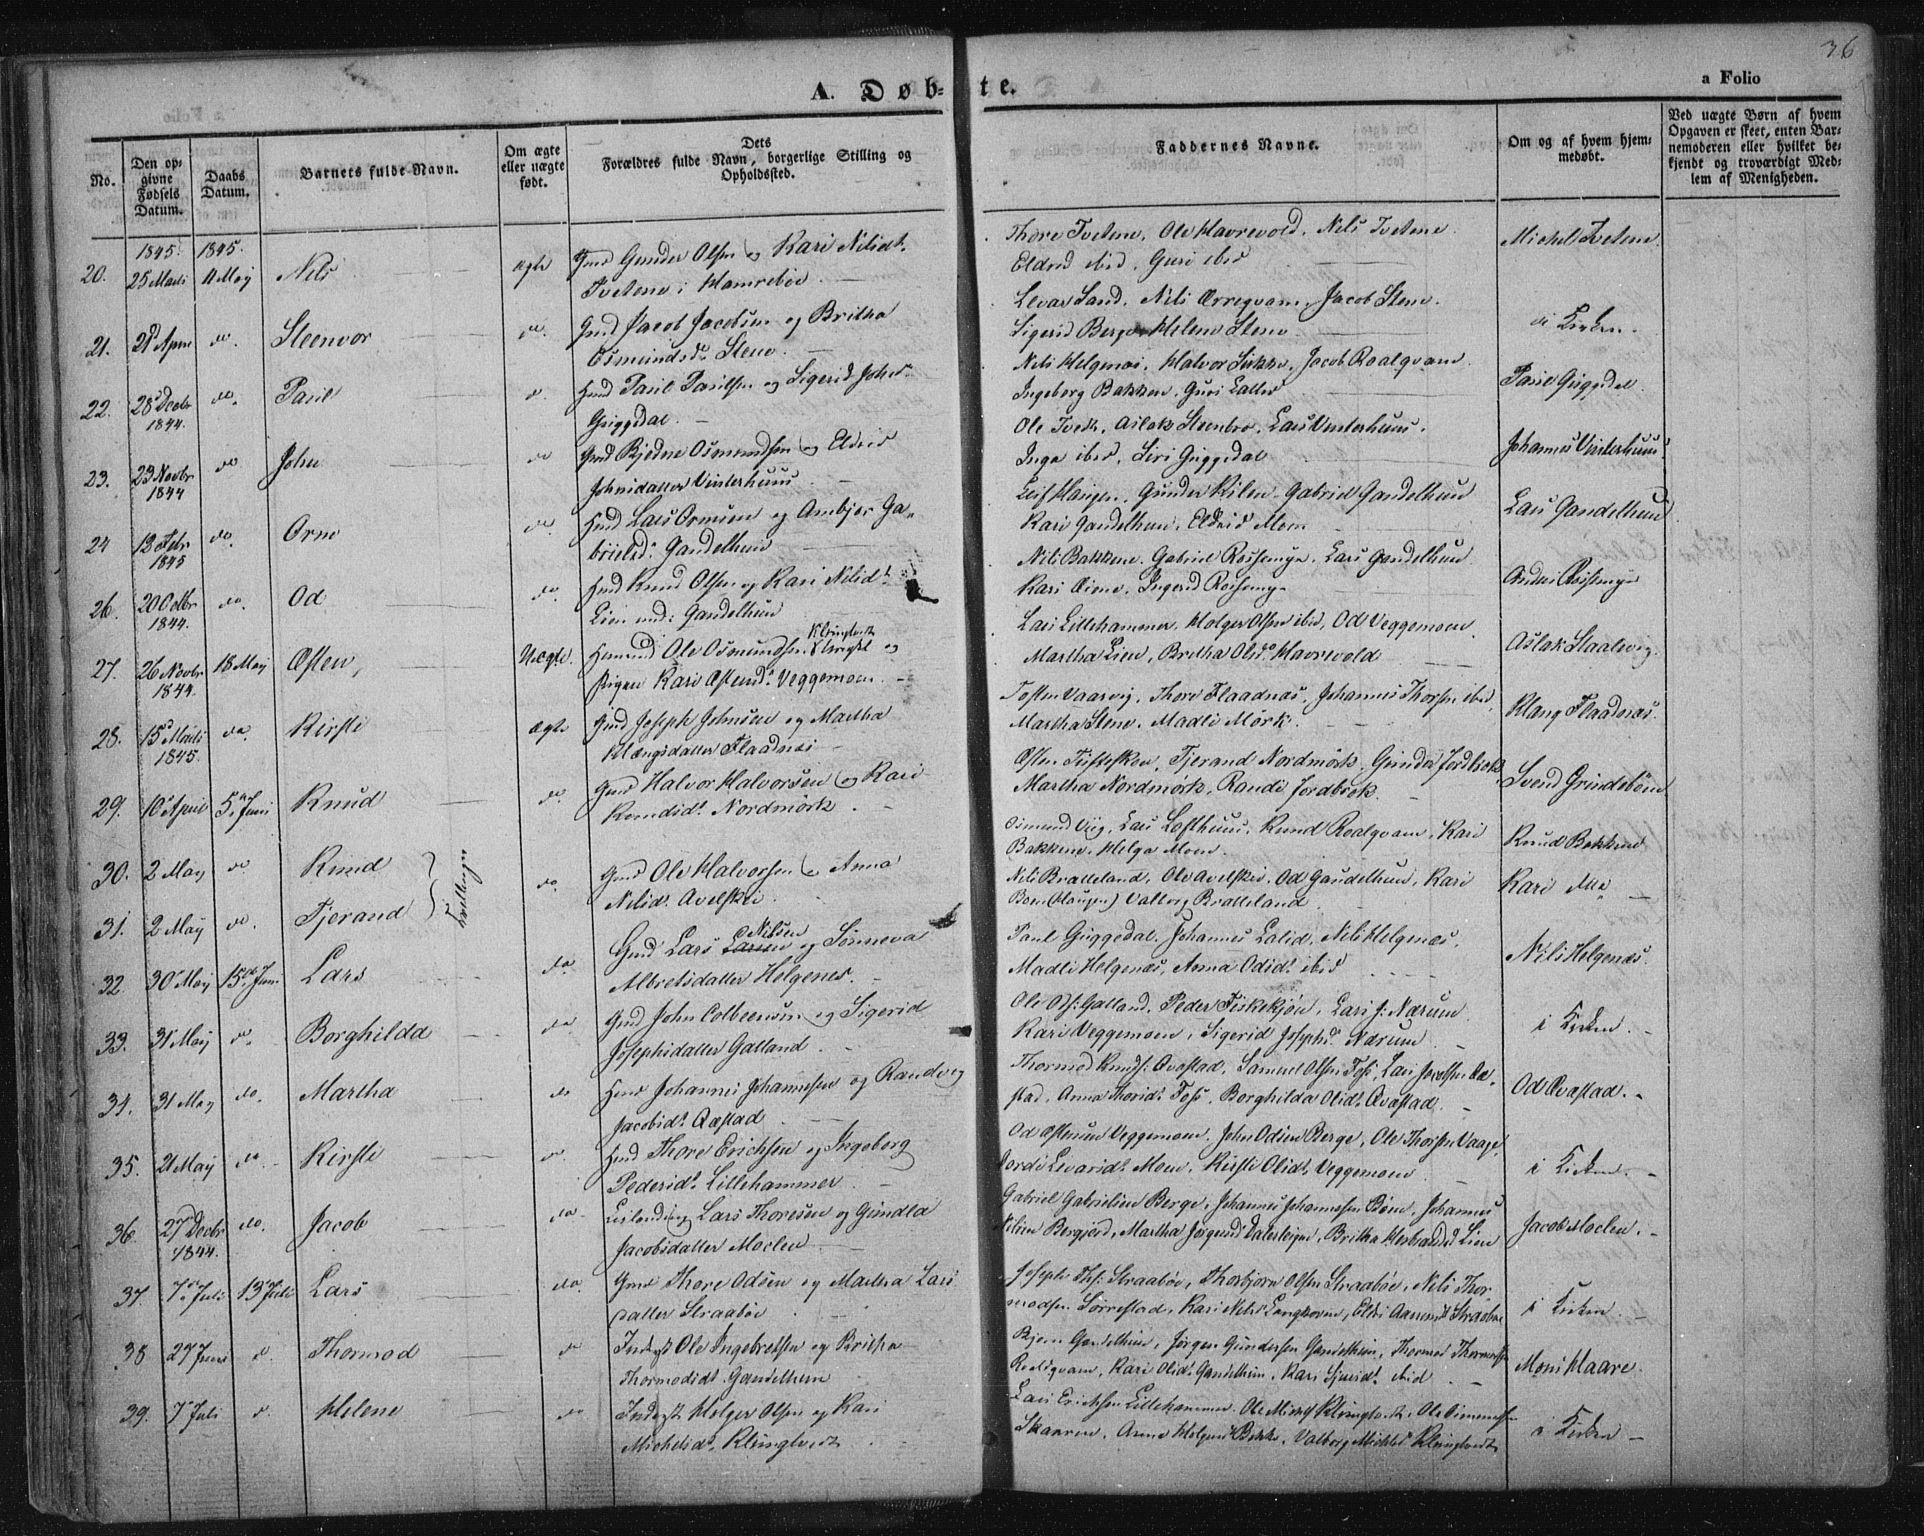 36
A. Døb-
te.
a Folio
No.
Den op-
givne
Fødsels
Datum.
Daabs
Datum.
Barnets fulde Navn.
Om ægte
eller uægte
født.
Dets
Forældres fulde Navn, borgerlige Stilling og
Opholdssted.
Faddernes Navne.
Om og af hvem hjem-
medøbt.
Ved uægte Børn af hvem
Opgaven er skeet, enten Bar-
nemoderen eller hvilket be-
kjendt og troværdigt Med-
lem af Menigheden.
1845. 1845.
20. 25 Marti 11 May Nels ægte Gmd Gunder Olsen og Kari Nilsd.
Tvetene i Hamrebøe
Thore Tvetene, Ole Havrevold, Nils Tvetene
Eldrid ibid, Guri ibid
Michel Tvetene
21. 21 April do. Steenvor do. Gmd Jacob Jacobsen og Britha
Osmundsd. Stene.
Levar Sand, Nils Ørreqvam, Jacob Stene.
Sigerid Berge, Helene Stene
i Kirken.
22. 28 Decbr do. Paul d. Hmd Paul Paulsen og Sigerid Johsd.
1844. Guggedal.
Nils Helgenæs, Halvor Sukke, Jacob Roalqvam
Ingeborg Bakken, Guri Lalid
Paul Guggedal
23. 23 Novbr do John do Gmd Bjødne Osmundsen og Eldrid
1844 Johnsdatter Vinterhuus
Ole Tvedt, Aslak Steenbro, Lars Vinterhuus.
Inga ibid, Siri Guggedal
Johannes Vinterhuus
24 12 Febr do. Orm do Hmd Lars Ormsen og Ambjør Ga-
1845 brielsd. Gandelhuun
Leif Haugen, Gunder Kilen, Gabriel Gandelhuun
Kari Gandelhuun, Eldrid Moen
Lars Gandelhuun
26. 20 Octbr do. Od do. Hmd Knud Olsen og Kari Nilsd.
1844. Lien und. Gandelhuun
Nils Bakken, Gabriel Røssenge, Lars Gandelhuun
Kari Øiene, Ingerid Røssenge
Anders Røssenge
27. 26 Novbr 18 May Østen, Uægte. Hemmd Ole Osmundsen Klungtvedt og
1844. Pigen Kari Østensd. Veggemoen.
Lars Lillehammer, Holger Olsen ibid, Od Veggemoen
Martha Lien, Britha Olsd. Havrevold
Aslak Staalevig.
28. 15 Marti do. Kirsti Ægte Gmd Joseph Johnsen og Martha
1845. Klængsdatter Flaadnæs
Tosten Vaarvig, Thore Flaadnæs, Johannes Thorsen ibid,
Martha Stene, Madli Mörk.
Klang Flaadnæs.
29. 10 April 5. Juni Knud do. Gmd Halvor Halvorsen og Kari
Knudsd. Nordmörk.
Østen Fisketjøn, Tjerand Nordmörk, Gunder Jordbrek
Martha Nordmörk, Randi Jordbrek.
Svend Grindebøen
30. 2 May do Knud Tvillinger do. Gmd Ole Halvorsen og Anna
Nilsd. Avelskei.
Osmund Viig, Lars Lofthuus, Knud Roalqvam, Kari
Bakken, Helga Moen.
Knud Bakken
31. 2 May do. Tjerand
Nils Bratteland, Ole Avelskei, Od Gandelhuun, Kari
Boen (Haugen) Valborg Bratteland.
Kari
32. 30 May 15. Juni Lars do Gmd Lars Larsen Nilsen og Sønneva
Albretsdatter Helgenes.
Paul Guggedal, Johannes Lalid, Nils Helgenæs,
Madli Helgenæs, Anna Odsd. ibid
Nils Helgenæs.
33. 31 May d. Borghilda do. Gmd John Colbeensen og Sigerid
Josephsdatter Galland.
Ole Ols: Galland, Peder Fiskekjøn, Lars J: Nærum
Kari Veggemoen, Sigerid Josephsd. Nærum
i Kirken.
34. 31 May do. Martha do Hmd Johannes Johannessen og Randvig
Jacobsd. Qvastad
Thormod Knuds: Qvastad, Samuel Olsen Foss, Lars Jacobsen Qva-
stad, Anna Thorsd. Foss, Borghilda Olsd. Qvastad.
Od Qvastad.
35. 21 May do. Kirsti do. Hmd Thore Erichsen og Ingeborg
Pedersd. Lillehammer.
Od Østensen Veggemoen, John Odsen Berge, Ole Thorsen Vaage,
Jordi Levarsd. Moen, Kirsti Olsd. Veggemoen
i Kirken.
36. 27 Decbr do. Jacob do. Leilending Lars Thoresen og Gundla
1844. Jacobsdatter Moclen
Gabriel Gabrielsen Berge, Johannes Johannessen Bøen, Johannes
Nilsen Bergjord, Martha Jørgensd Dalesteigen, Britha Herbrandsd Lien
Jacob Moclen.
37. 7. Juli 13 Juli Lars do. Gmd Thore Odsen og Martha Lars
datter Straabøe
Joseph Ths: Straabøe, Thorbjørn Olsen Straabøe, Nils Thor
modsen Sørrestad, Kari Nilsd Langhaven, Eldri Aanensd Straabøe
i Kirken
38 27 Juni d. Thormod do Inderst Ole Ingebretsen og Britha
Thormodsd. Gandelhuun
Bjørn Gandelhuun, Jörgen Gundersen Gandelhuun, Thormod Thormodsen
Roalqvam, Kari Olsd. Gandelhuun, Kari Sjursd. ibid
Mons Haare.
39. 7 Juli d. Helene do Inderst Holger Olsen og Kari
Michelsd. Klungtvedt
Lars Erichsen Lillehammer, Ole Michels. Klungtvedt, Ole Simonsen
Skaaren, Anna Holgersd Bakke, Valborg Michelsd Klungtvedt
i Kirken